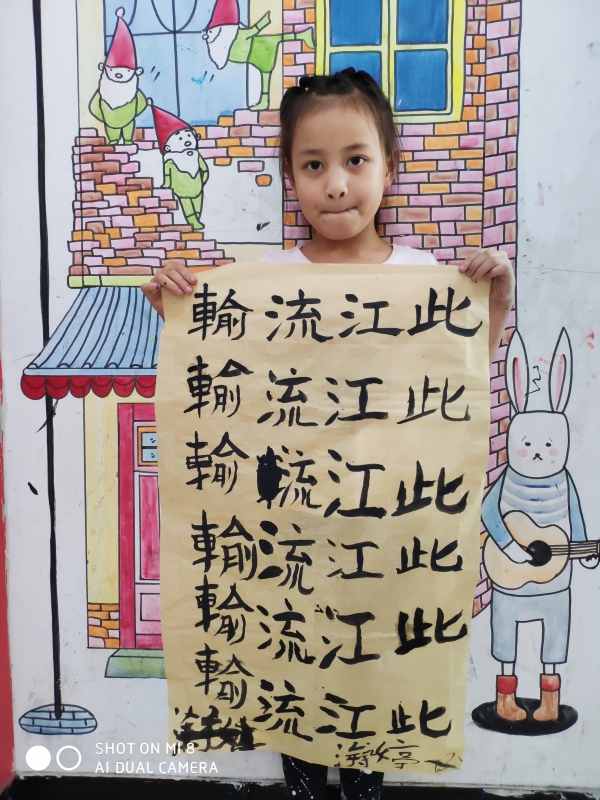 此此此此此此
江江江江江江
流流流流流流
輸輸輸輸輸輸
SHOT ON MI 8
AI DUAL CAMERA